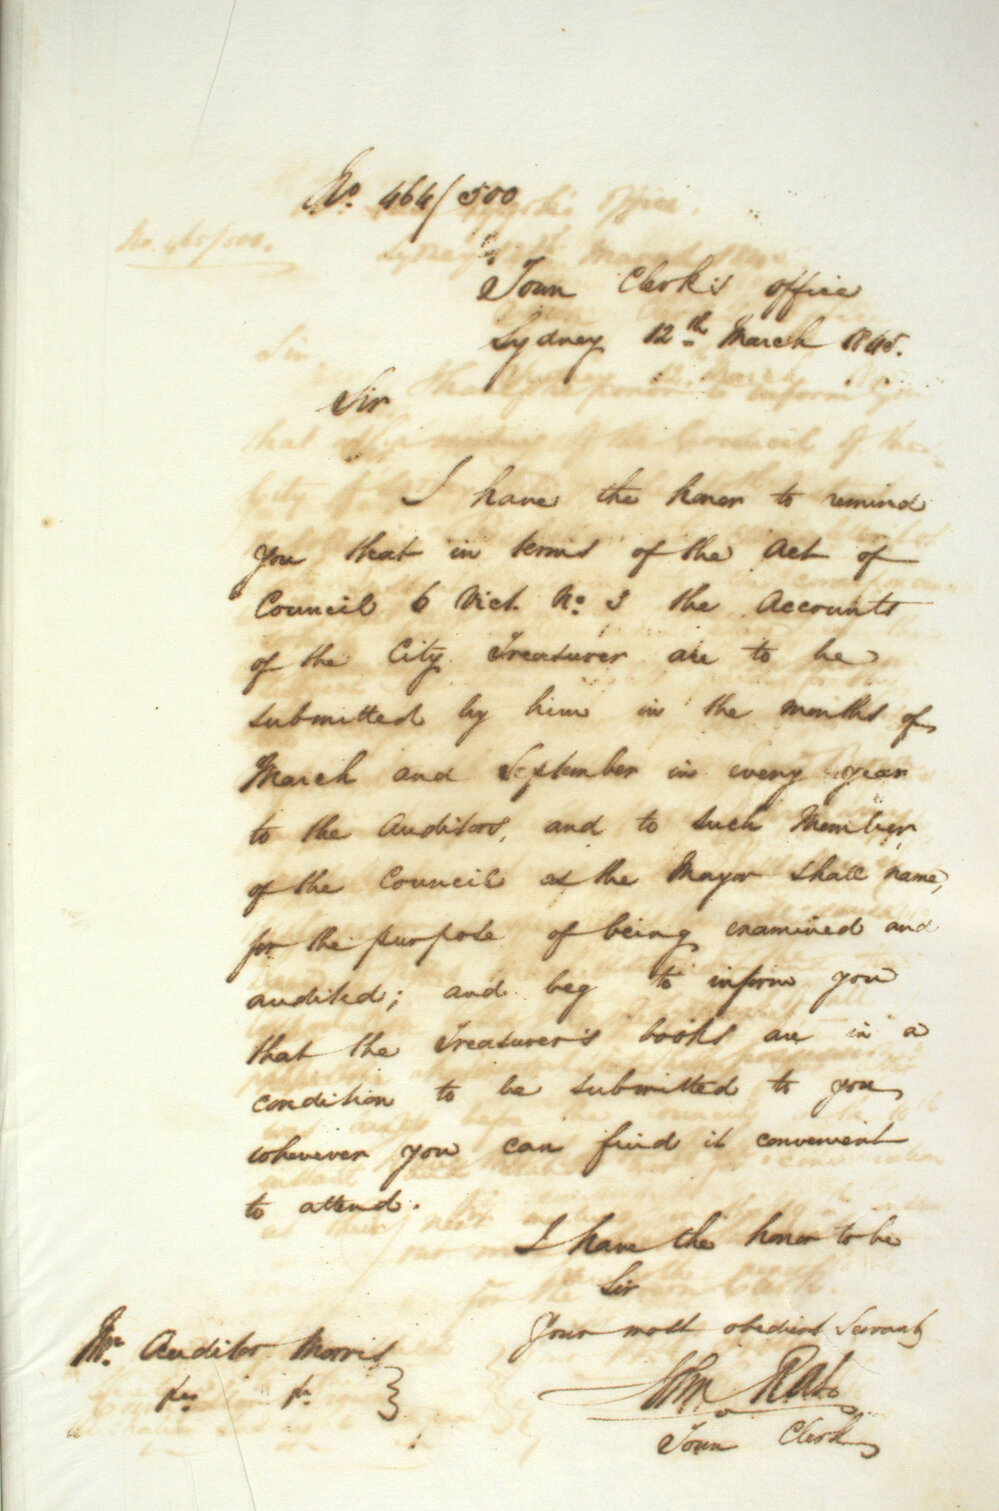 No. 464/500
Town Clerk's office
Sydney 12th March 1845.
Sir
I have the honor to remind
you that in terms of the Act of
Council 6 Vict. No. 3 the Accounts
of the City Treasurer are to be
submitted by him in the months of
March and September in every year
to the Auditors, and to such Member
of the Council as the Mayor shall name,
for the purpose of being examined and
audited; and beg to inform you
that the Treasurer's books are in a
condition to be submitted to you
whenever you can find it convenient
to attend.
I have the honor to be
Sir
Your most obedient Servant
Mr. Auditor Morris
John Rae
Town Clerk